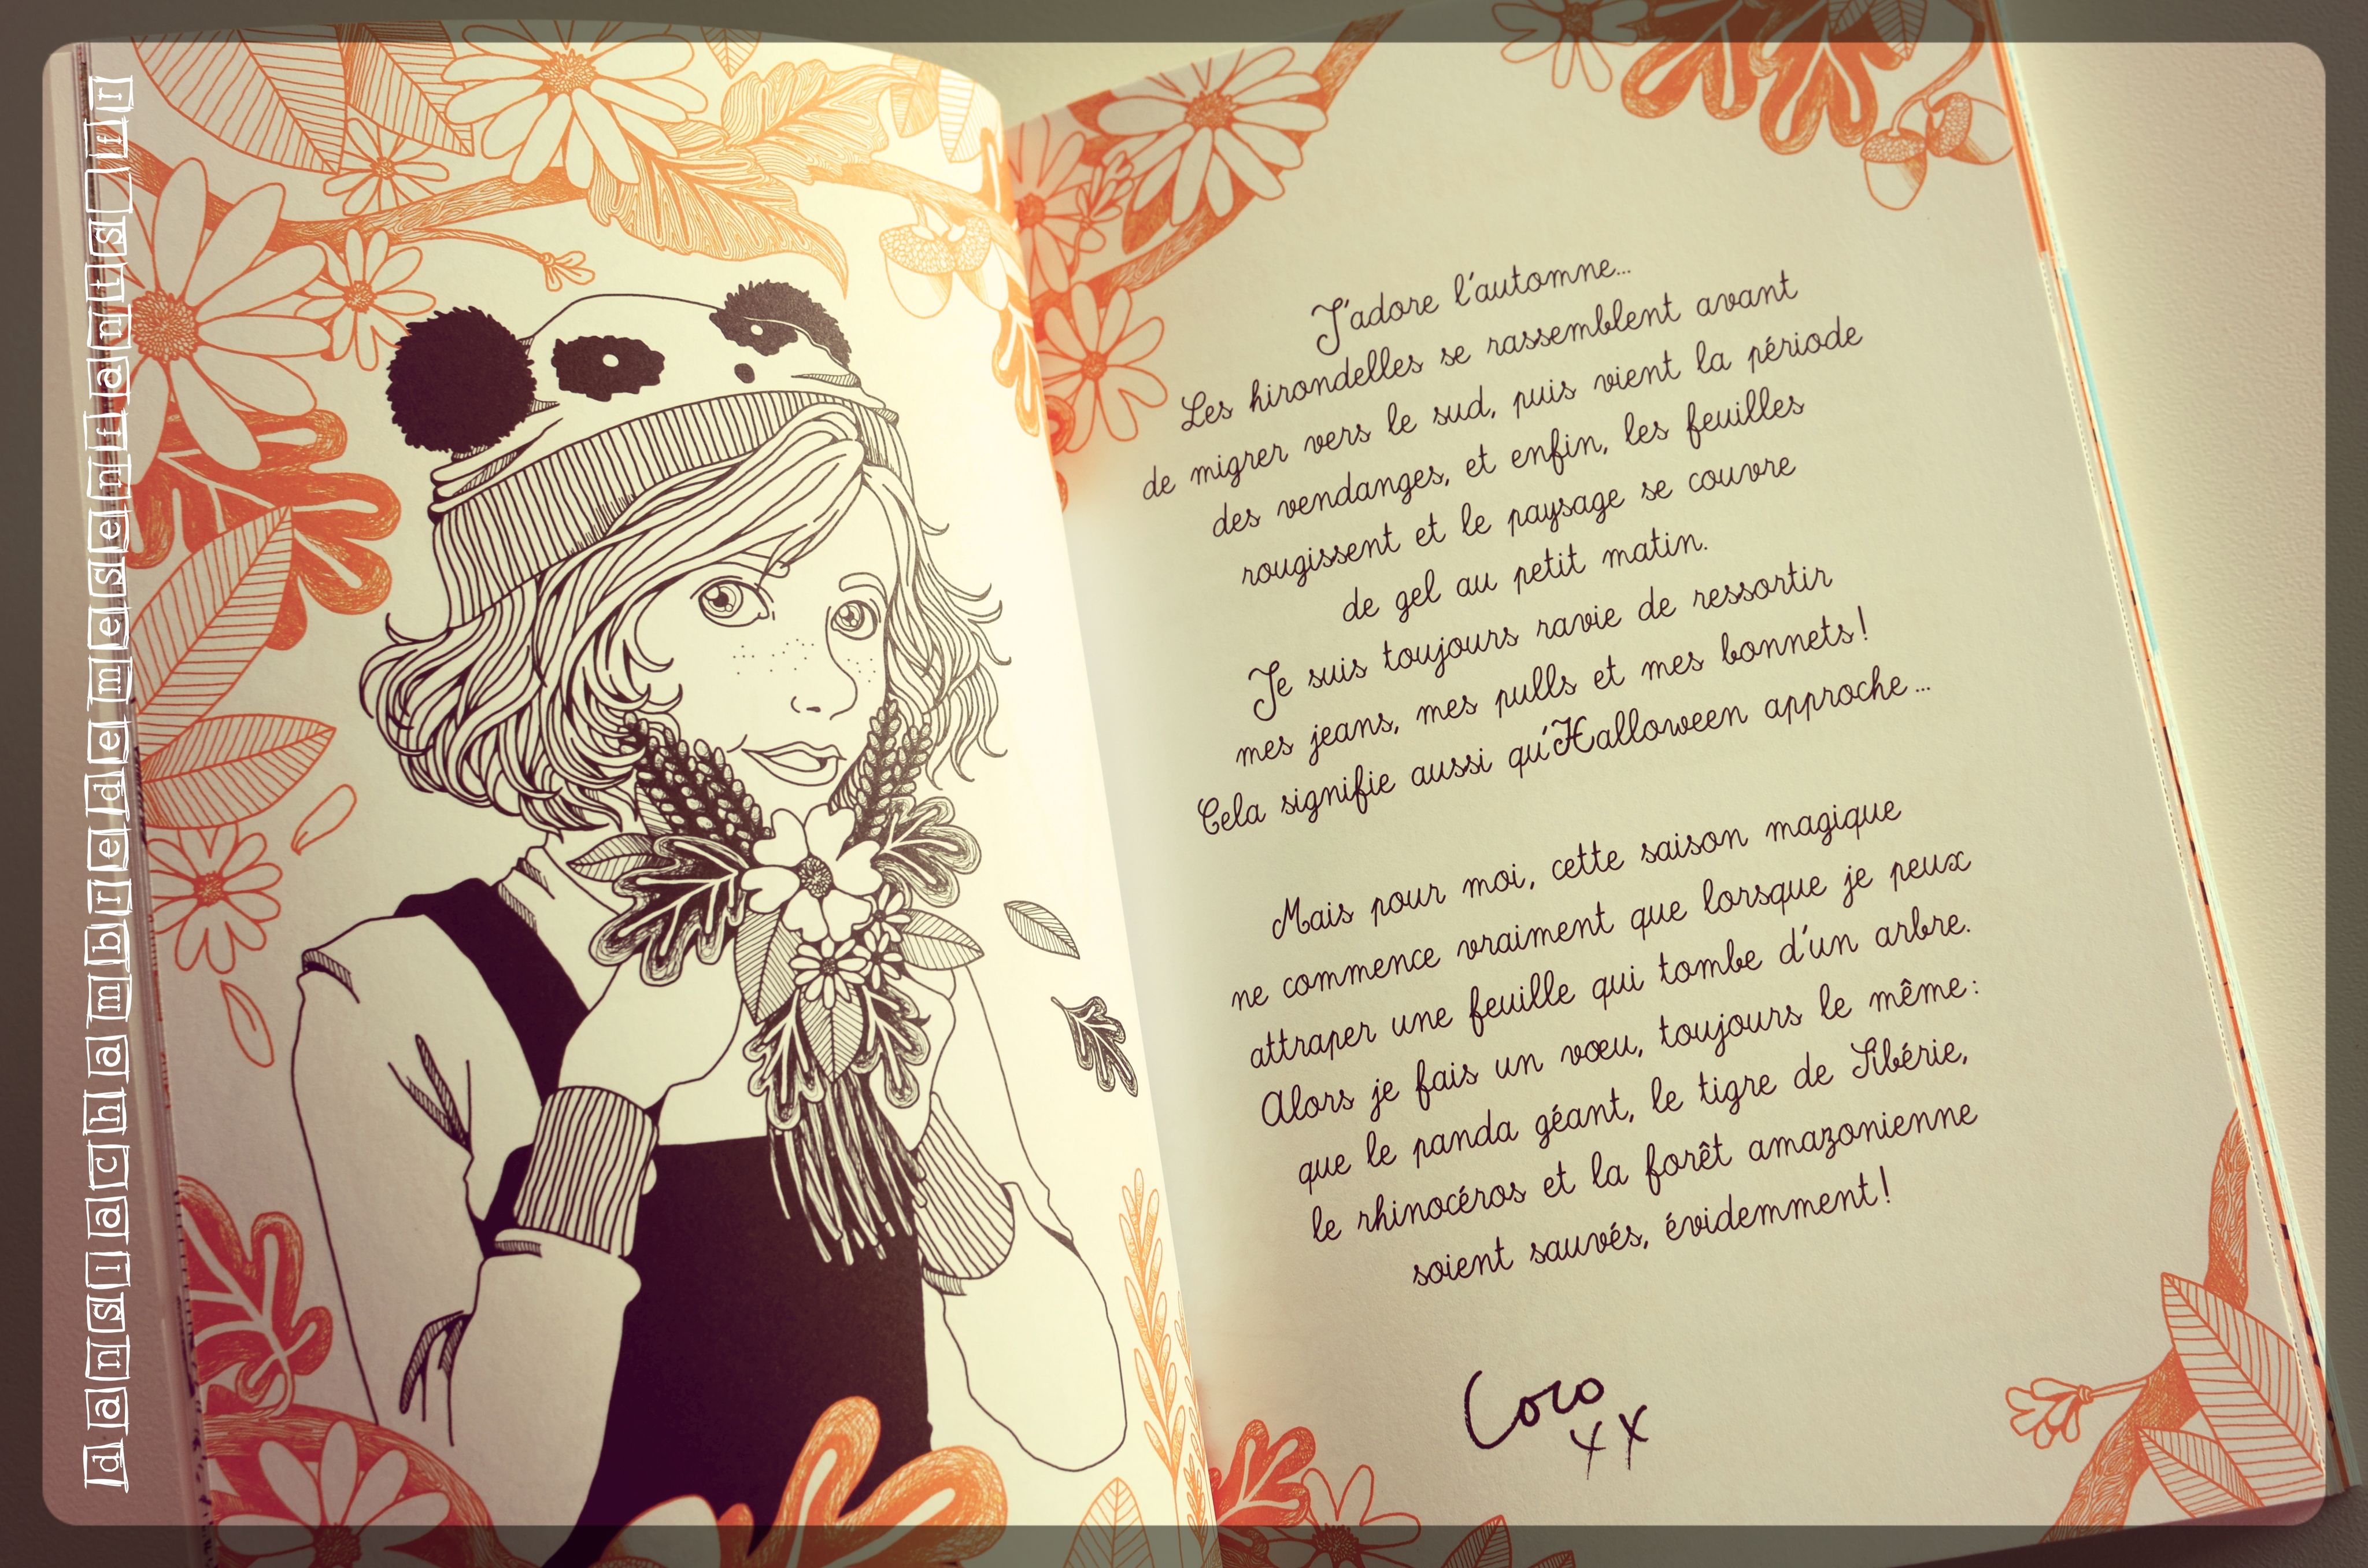 danslachambredemesenfants_fr
J'adore l'automne...
Les hirondelles se rassemblent avant
de migrer vers le sud, puis vient la période
des vendanges, et enfin, les feuilles
rougissent et le paysage se couvre
de gel au petit matin.
Je suis toujours ravie de ressortir
mes jeans, mes pulls et mes bonnets!
Cela signifie aussi qu'Halloween approche...
Mais pour moi, cette saison magique
ne commence vraiment que lorsque je peux
attraper une feuille qui tombe d'un arbre.
Alors je fais un vœu, toujours le même:
que le panda géant, le tigre de Sibérie,
le rhinocéros et la forêt amazonienne
soient sauvés, évidemment!
Coco
xx